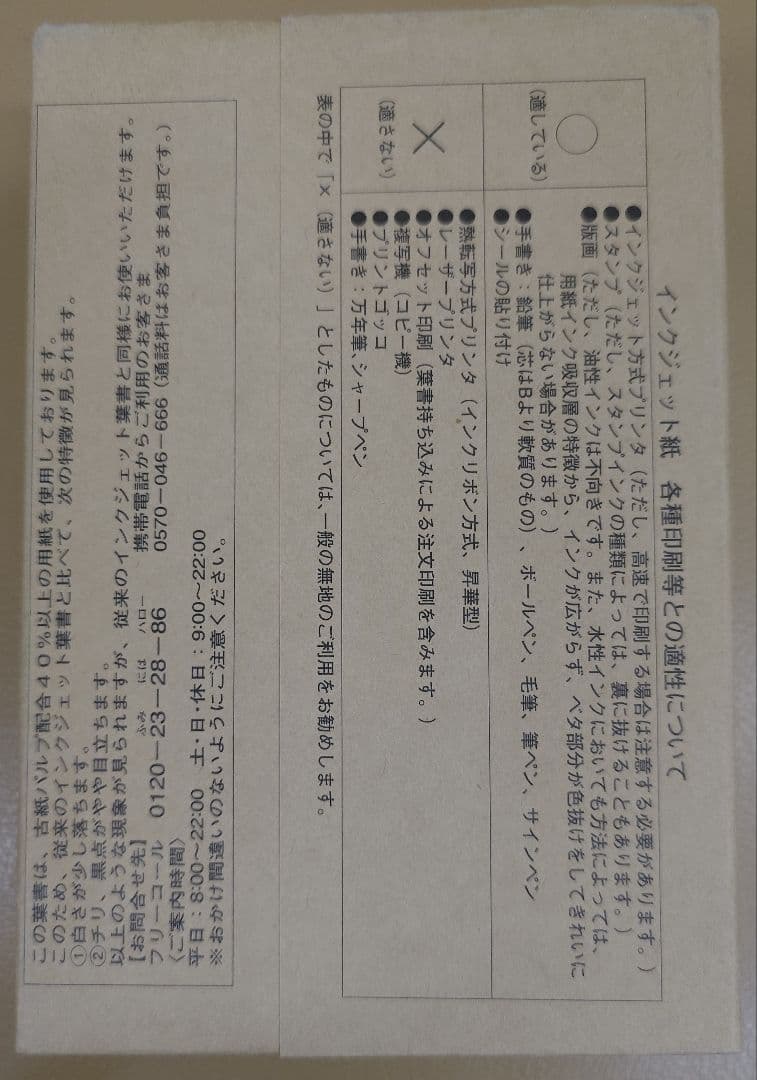 インクジェット紙　各種印刷等との適性について
○
(適している)
●インクジェット方式プリンタ（ただし、高速で印刷する場合は注意する必要があります。）
●スタンプ（ただし、スタンプインクの種類によっては、裏に抜けることもあります。）
●版画（ただし、油性インクは不向きです。また、水性インクにおいても方法によっては、
用紙インク吸収層の特徴から、インクが広がらず、ベタ部分が色抜けをしてきれいに
仕上がらない場合があります。）
●手書き：鉛筆（芯はBより軟質のもの）、ボールペン、毛筆、筆ペン、サインペン
●シールの貼り付け
×
(適さない)
●熱転写方式プリンタ（インクリボン方式、昇華型）
●レーザープリンタ
●オフセット印刷（葉書持ち込みによる注文印刷を含みます。）
●複写機（コピー機）
●プリントゴッコ
●手書き：万年筆、シャープペン
表の中で「×（適さない）」としたものについては、一般の無地のご利用をお勧めします。
この葉書は、古紙パルプ配合４０％以上の用紙を使用しております。
このため、従来のインクジェット葉書と比べて、次の特徴が見られます。
①白さが少し落ちます。
②チリ、黒点がやや目立ちます。
以上のような現象が見られますが、従来のインクジェット葉書と同様にお使いいただけます。
【お問合せ先】
ふみ　には　ハロー
携帯電話からご利用のお客さま
フリーコール　0120−23−28−86
0570−046−666（通話料はお客さま負担です。）
〈ご案内時間〉
平日：8:00〜22:00　土・日・休日：9:00〜22:00
※おかけ間違いのないようにご注意ください。